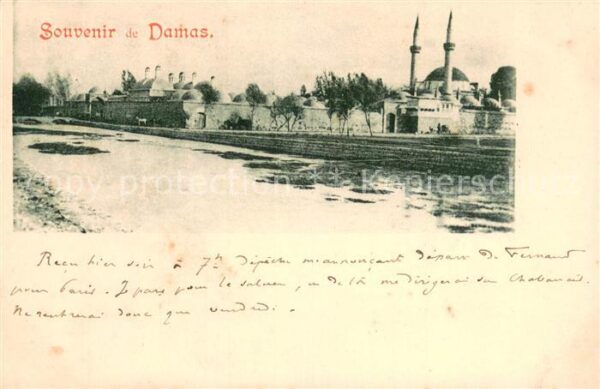 Souvenir de Damas.
copy protection - Kopierschutz
Reçu hier soir à 7h dépêche m'annonçant départ de Fernand
pour Paris. Je pars pour le saluer, & de là me dirigerai sur Chabanais.
Ne rentrerai donc que vendredi.